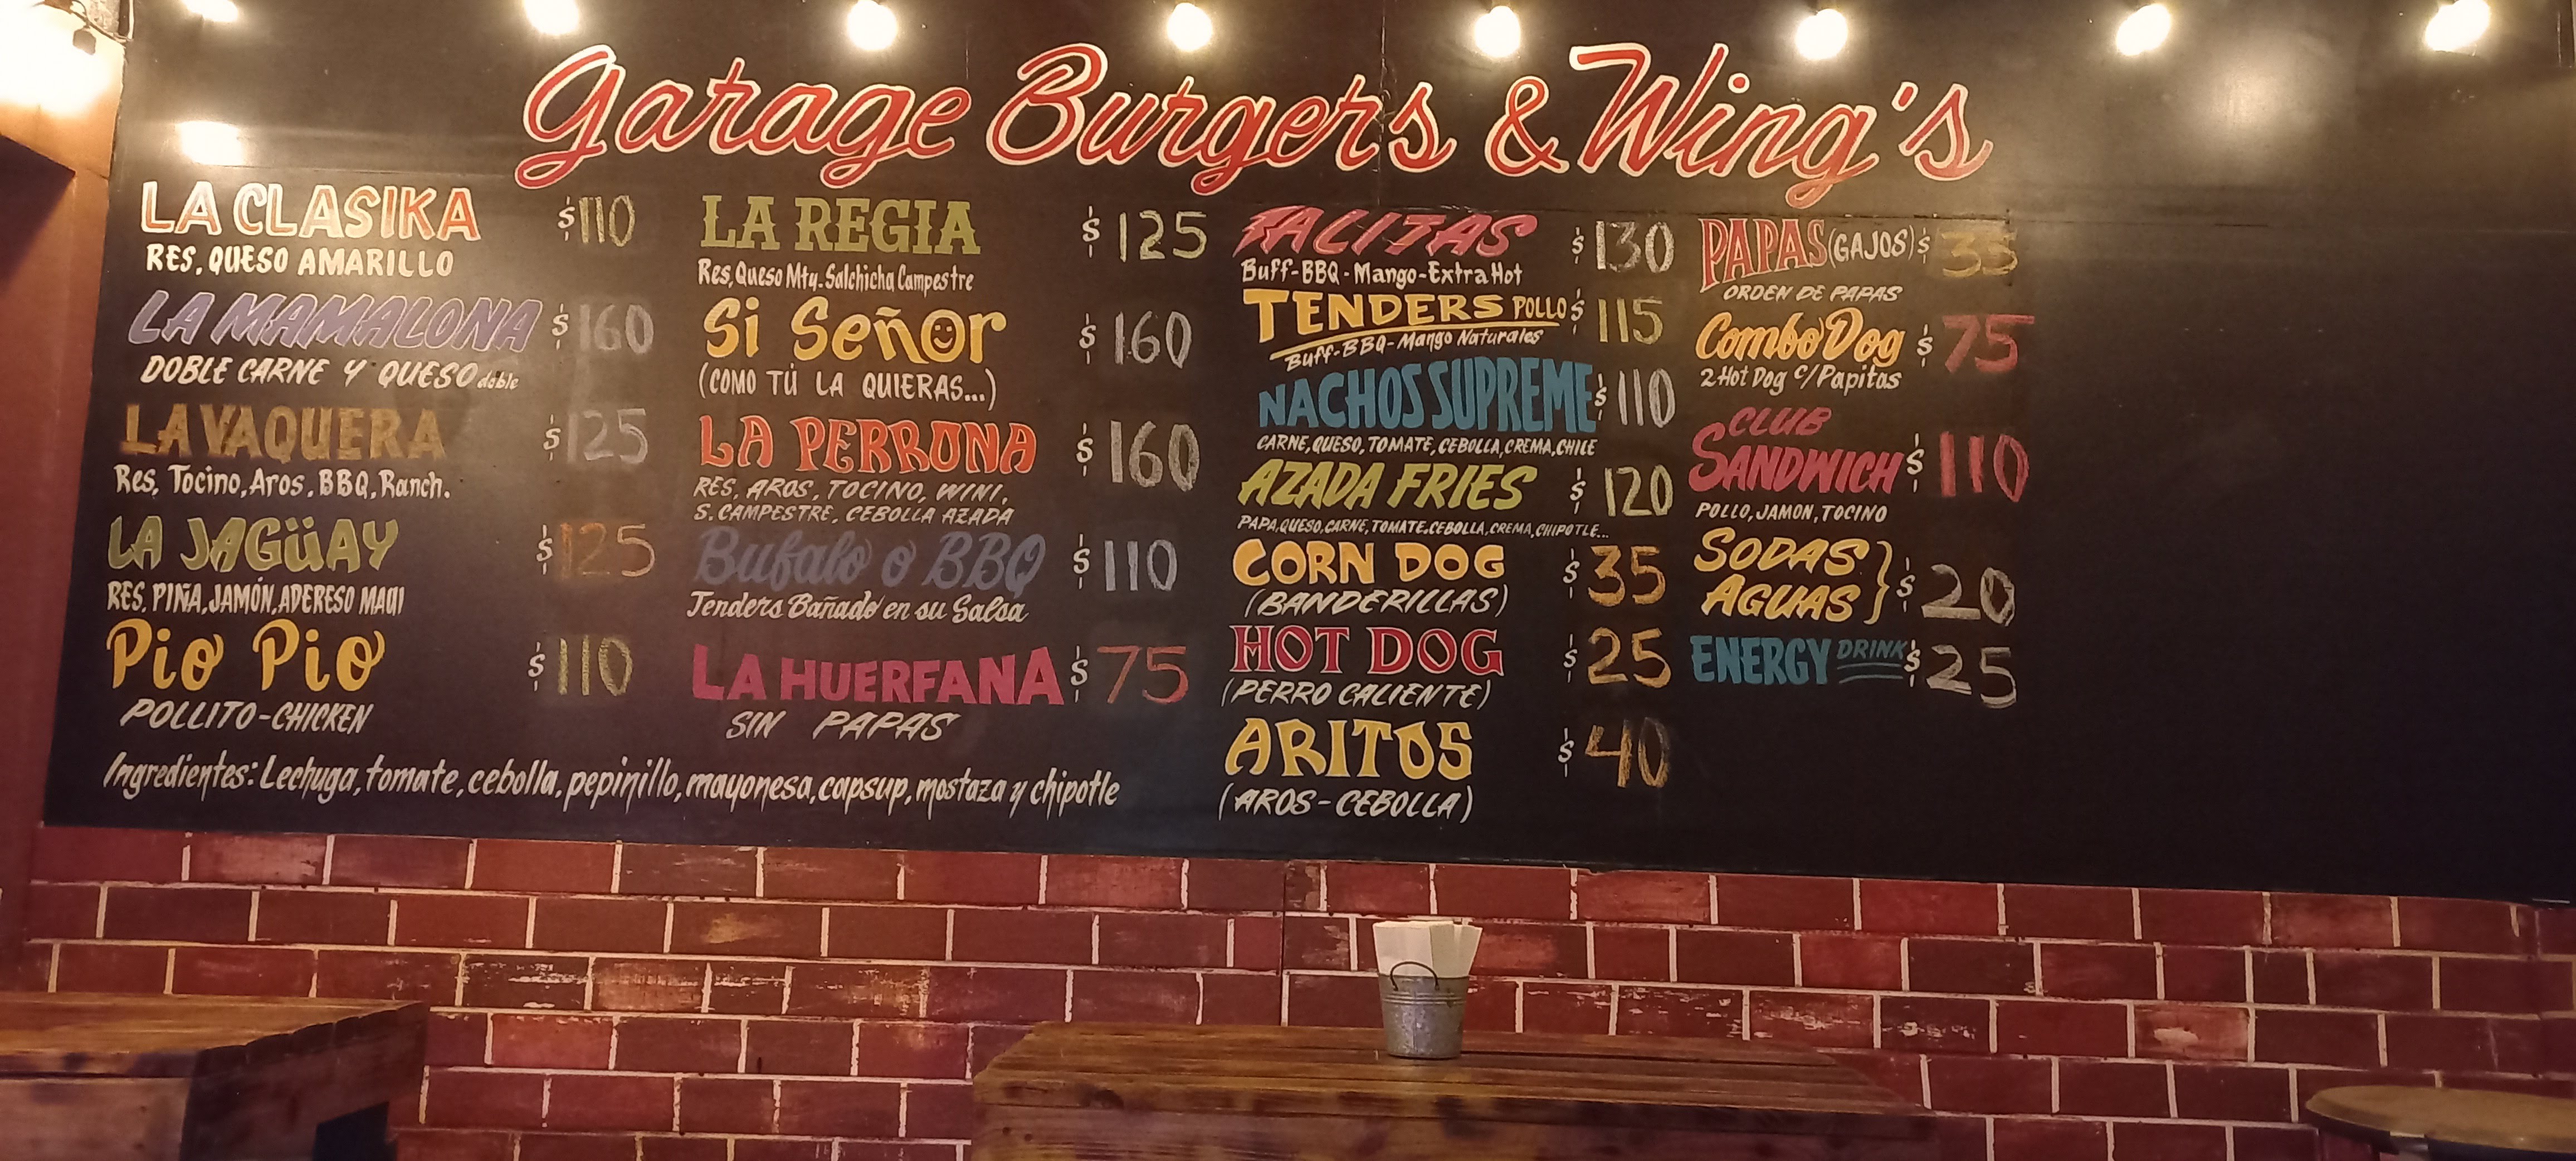 Garage Burgers & Wing's
LA CLASIKA $110
RES, QUESO AMARILLO
LA MAMALONA $160
DOBLE CARNE Y QUESO doble
LA VAQUERA $125
Res, Tocino, Aros, BBQ, Ranch.
LA JAGÜAY $125
RES, PIÑA, JAMÓN, ADERESO MAUI
Pio Pio $110
POLLITO-CHICKEN
LA REGIA $125
Res, Queso Mty. Salchicha Campestre
Si Señor $160
(COMO TÚ LA QUIERAS...)
LA PERRONA $160
RES, AROS, TOCINO, WINI,
S. CAMPESTRE, CEBOLLA AZADA
Bufalo o BBQ $110
Tenders Bañado en su Salsa
LA HUERFANA $75
SIN PAPAS
Ingredientes: Lechuga, tomate, cebolla, pepinillo, mayonesa, capsup, mostaza y chipotle
ALITAS $130
Buff-BBQ-Mango-Extra Hot
TENDERS POLLO $115
Buff-BBQ-Mango Naturales
NACHOS SUPREME $110
CARNE, QUESO, TOMATE, CEBOLLA, CREMA, CHILE
AZADA FRIES $120
PAPA, QUESO, CARNE, TOMATE, CEBOLLA, CREMA, CHIPOTLE...
CORN DOG $35
(BANDERILLAS)
HOT DOG $25
(PERRO CALIENTE)
ARITOS $40
(AROS-CEBOLLA)
PAPAS (GAJOS) $35
ORDEN DE PAPAS
Combo Dog $75
2 Hot Dog c/Papitas
CLUB
SANDWICH $110
POLLO, JAMON, TOCINO
SODAS
AGUAS } $20
ENERGY DRINK $25